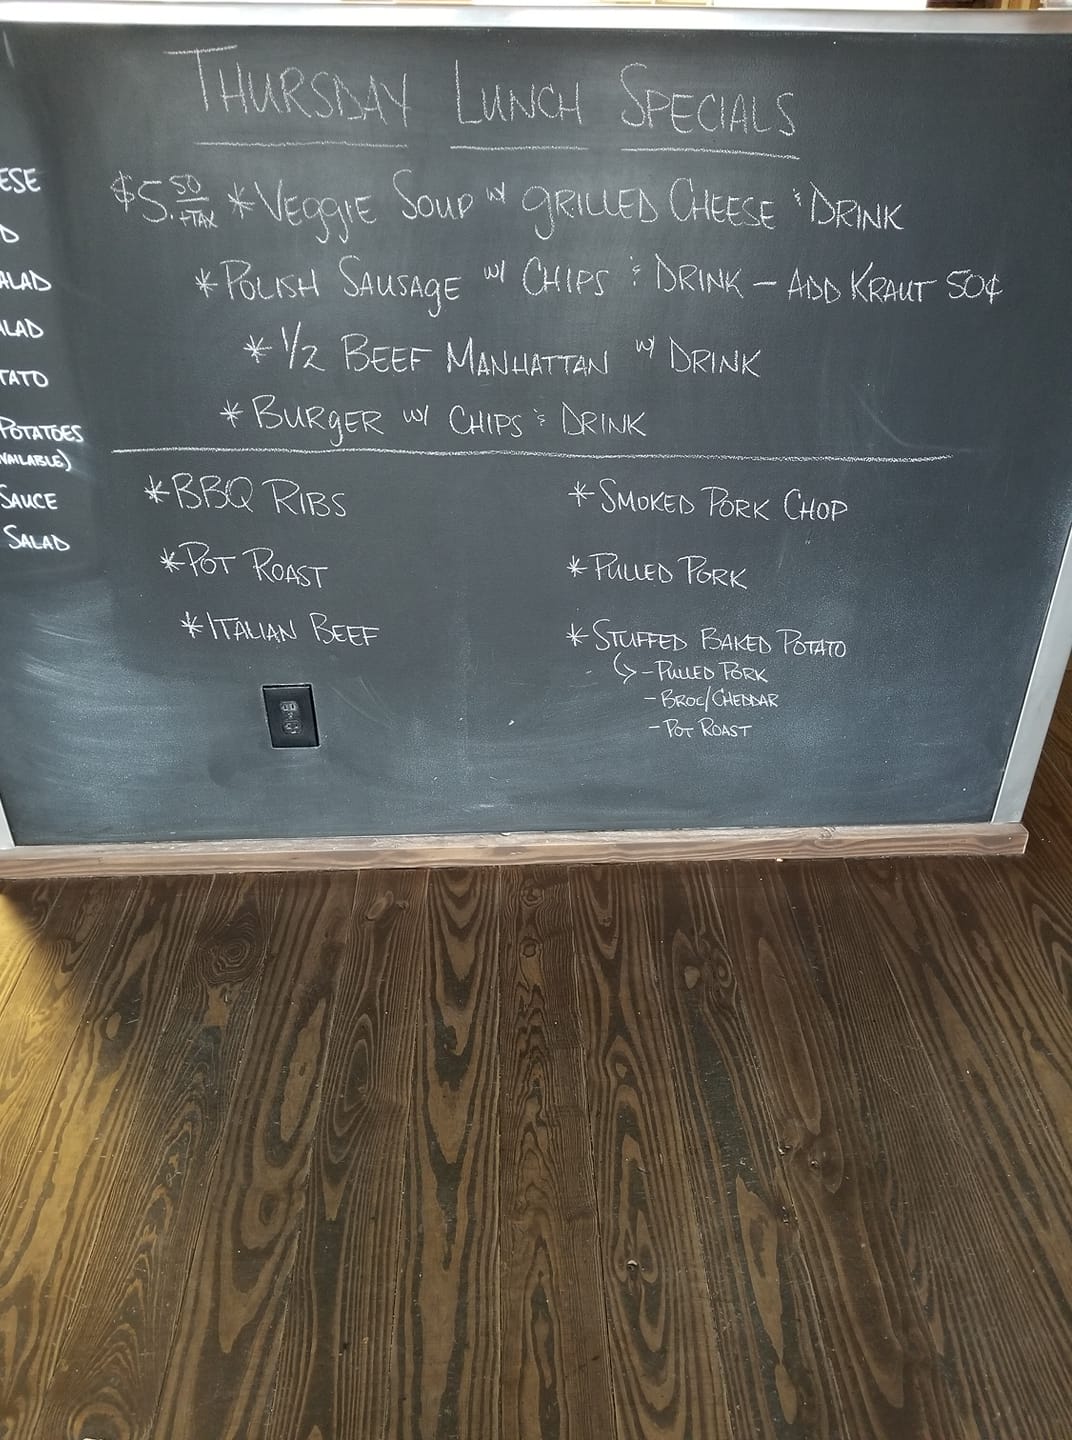 THURSDAY LUNCH SPECIALS
$5.50 +TAX *VEGGIE SOUP w/ GRILLED CHEESE & DRINK
*POLISH SAUSAGE w/ CHIPS & DRINK - ADD KRAUT 50¢
*1/2 BEEF MANHATTAN w/ DRINK
*BURGER w/ CHIPS & DRINK
*BBQ RIBS
*POT ROAST
*ITALIAN BEEF
*SMOKED PORK CHOP
*PULLED PORK
*STUFFED BAKED POTATO
- PULLED PORK
- BROC/CHEDDAR
- POT ROAST
POTATOES
SAUCE
SALAD